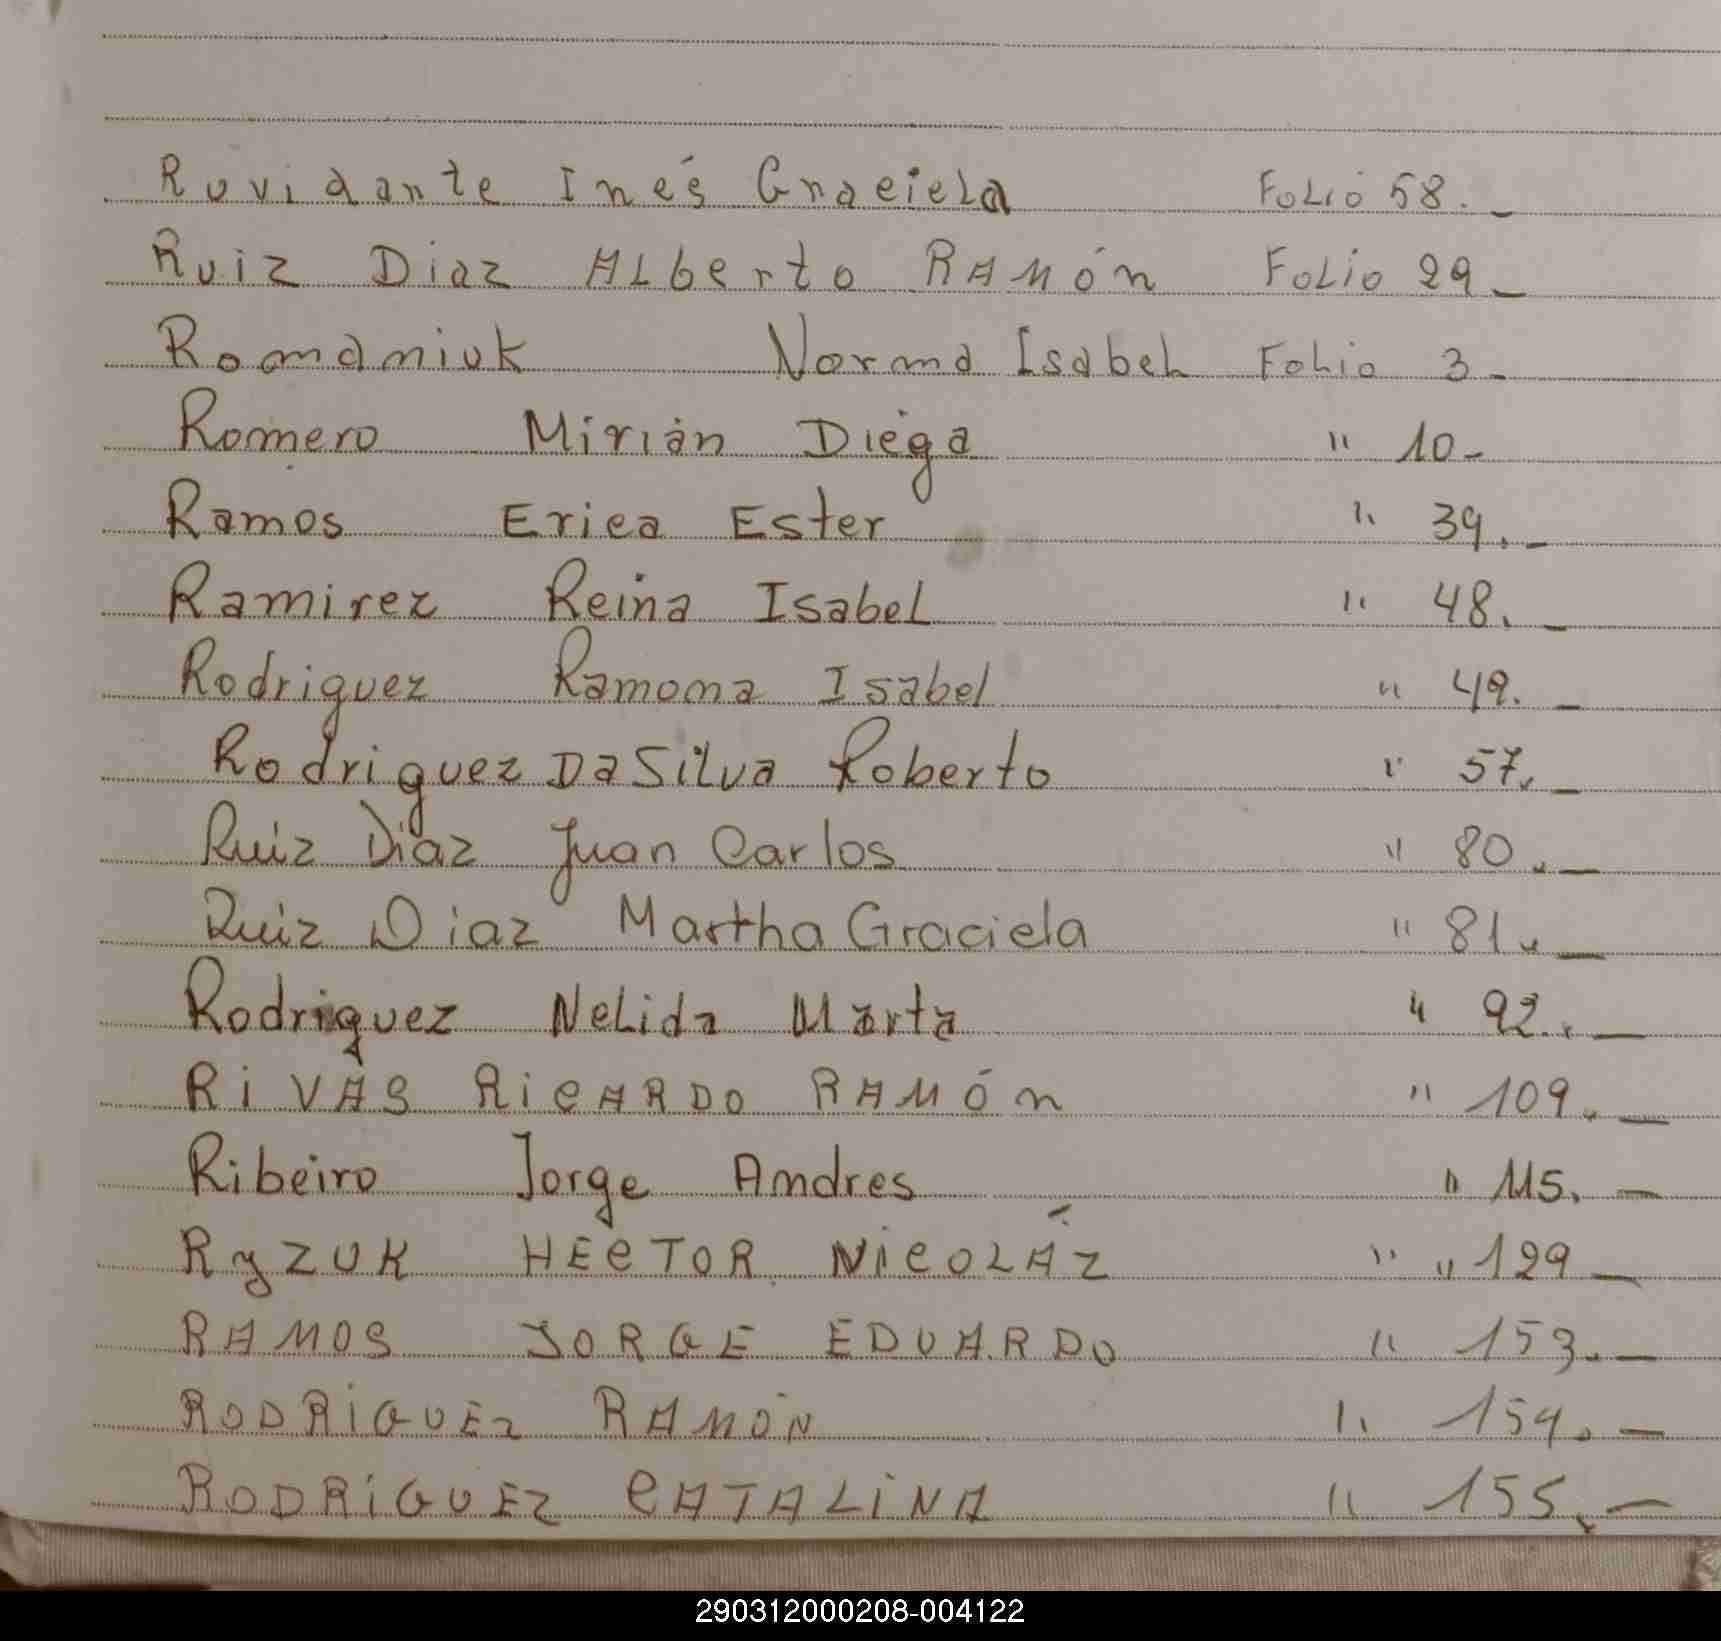 Rovidante Inés Graciela Folio 58._
Ruiz Diaz Alberto Ramón Folio 29_
Romaniuk Norma Isabel Folio 3_
Romero Mirián Diega " 10_
Ramos Erica Ester " 39._
Ramirez Reina Isabel " 48._
Rodriguez Ramona Isabel " 49._
Rodriguez DaSilva Roberto " 57._
Ruiz Diaz Juan Carlos " 80._
Ruiz Diaz Martha Graciela " 81._
Rodriguez Nelida Marta " 92._
RiVAS RiCARDO RAMÓn " 109._
Ribeiro Jorge Andres " 115._
RyZUK HECTOR NiCOLÁZ " " 129_
RAMOS JORGE EDUARDO " 153._
RODRiGUEZ RAMÓN " 154._
RODRiGUEZ CATALiNA " 155._
290312000208-004122